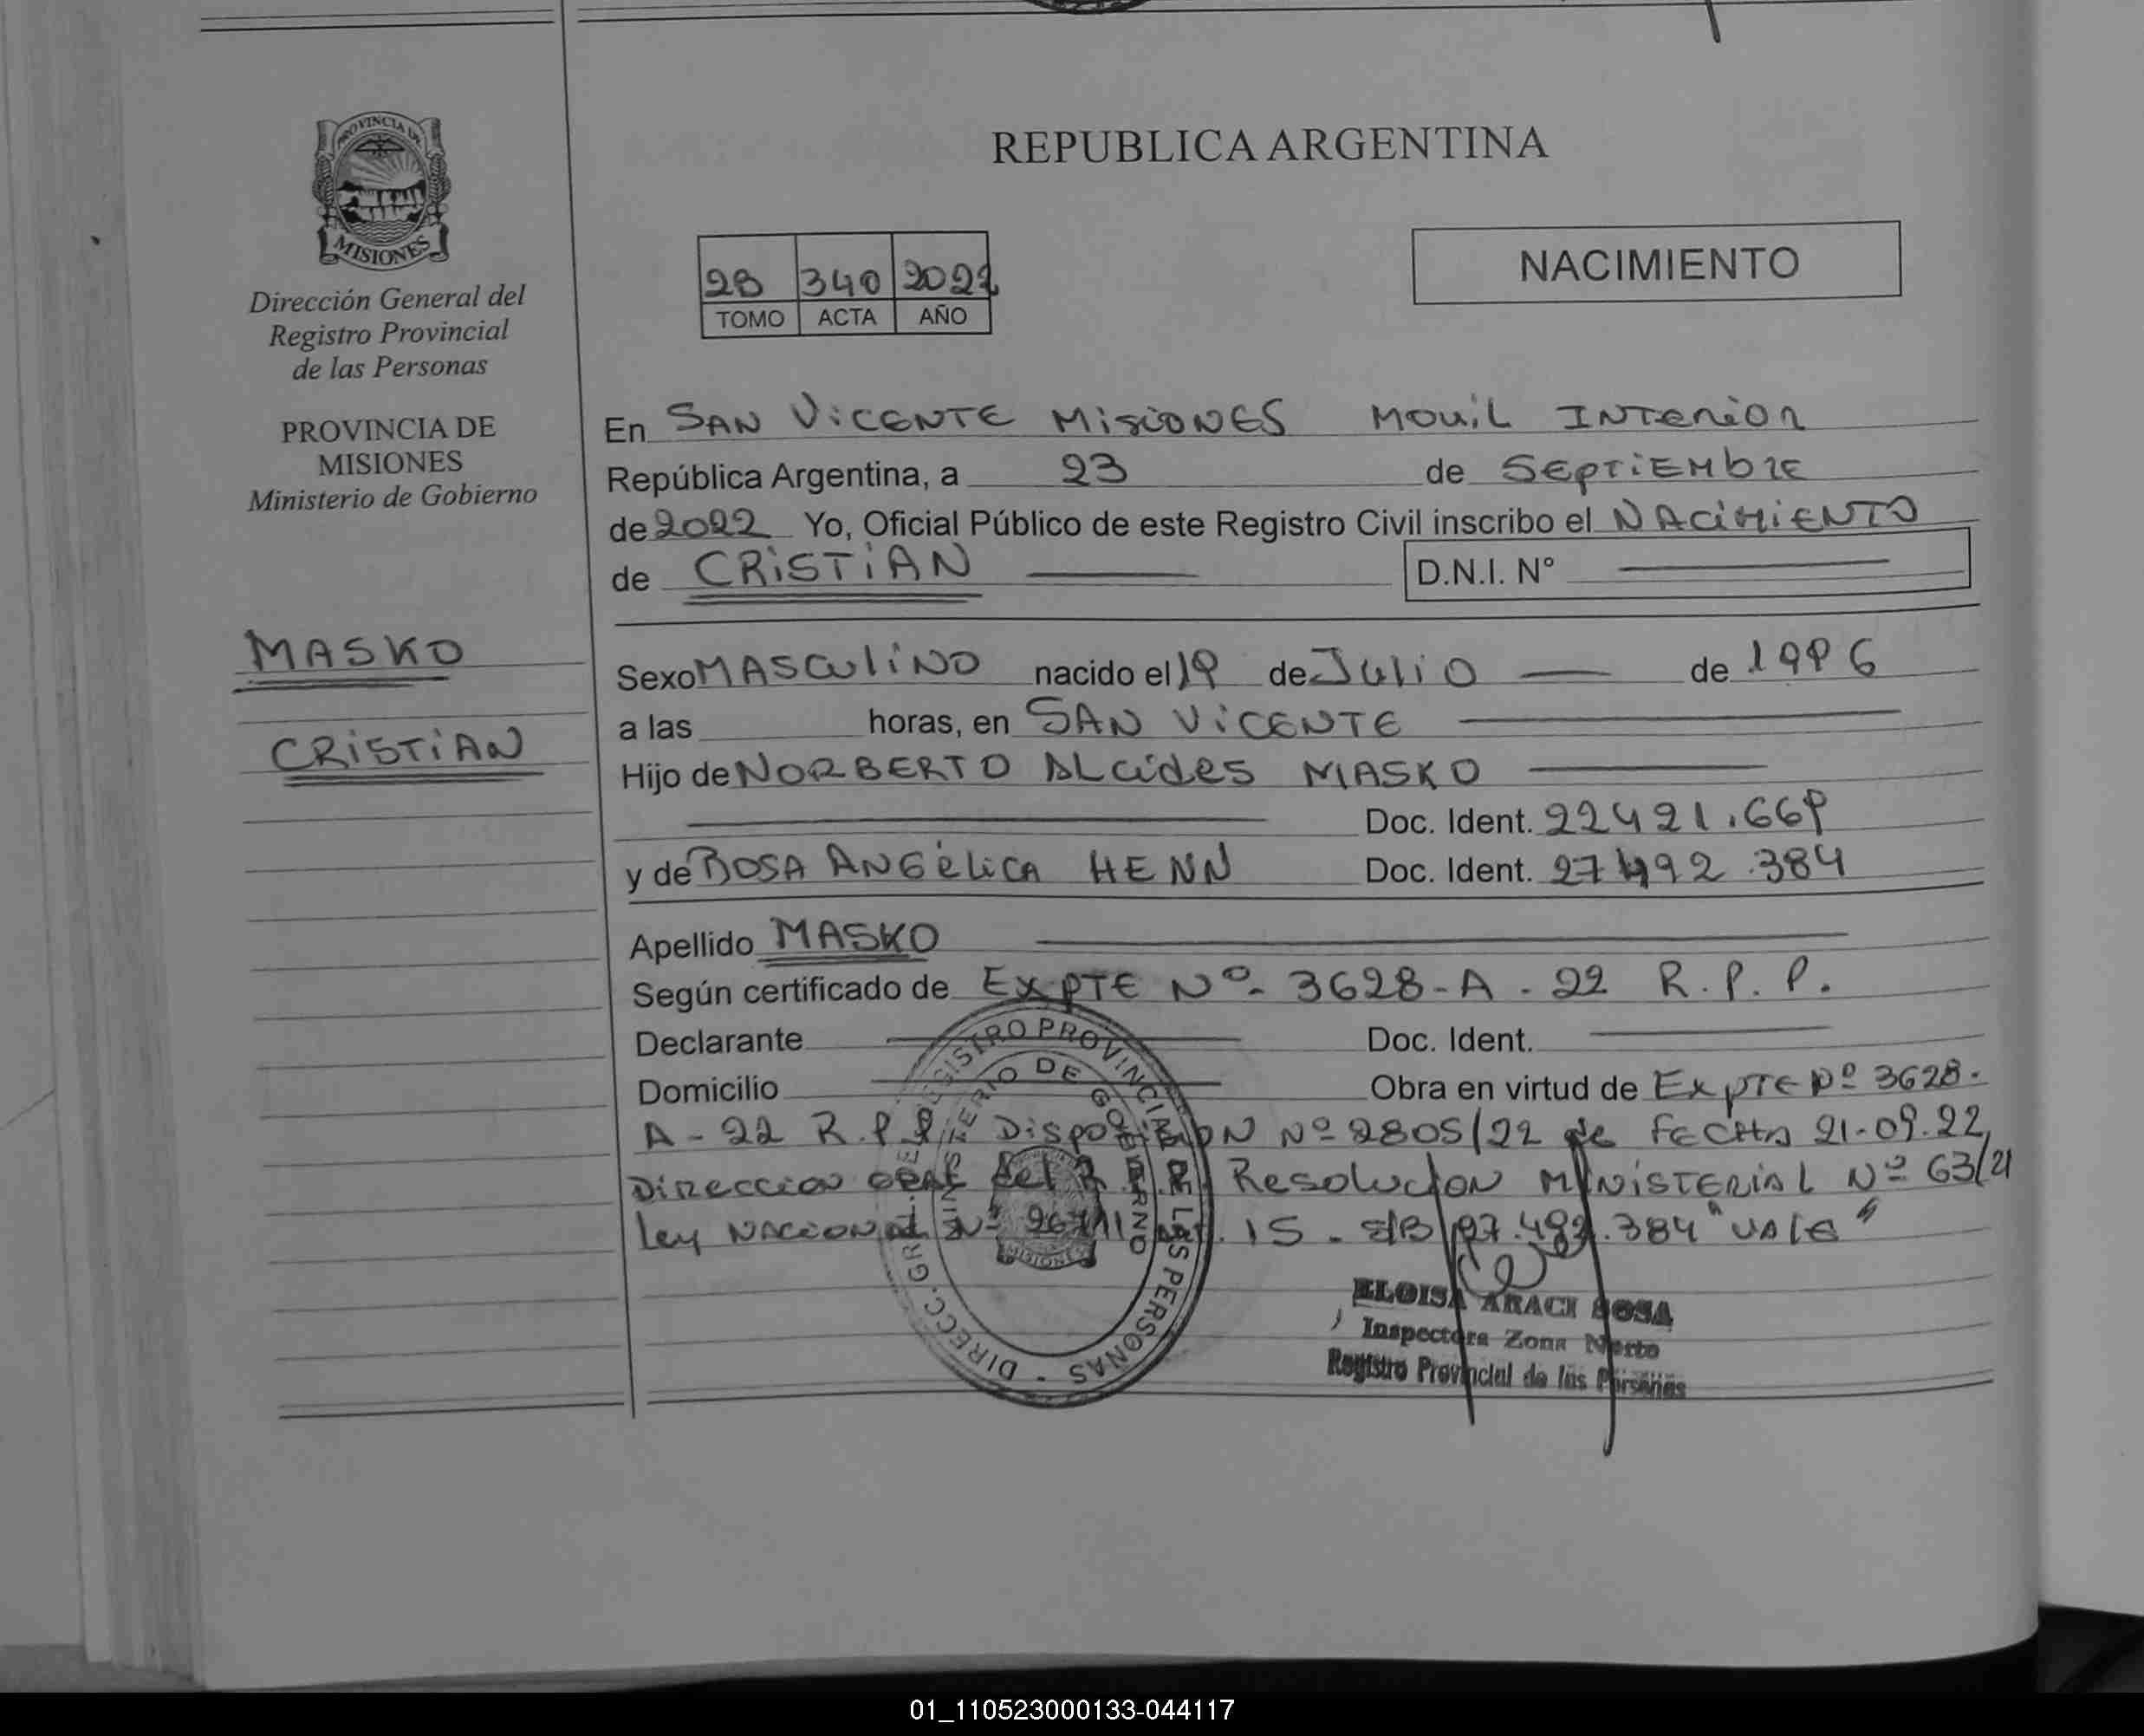 PROVINCIA DE
MISIONES
Dirección General del
Registro Provincial
de las Personas
PROVINCIA DE
MISIONES
Ministerio de Gobierno
MASKO
CRISTIAN
REPUBLICA ARGENTINA
NACIMIENTO
28 340 2022
TOMO ACTA AÑO
En SAN VICENTE MISIONES MOVIL INTERIOR
República Argentina, a 23 de SEPTIEMBRE
de 2022 Yo, Oficial Público de este Registro Civil inscribo el NACIMIENTO
de CRISTIAN D.N.I. Nº
Sexo MASCULINO nacido el 19 de JULIO de 1996
a las horas, en SAN VICENTE
Hijo de NORBERTO ALCIDES MASKO
Doc. Ident. 22421.669
y de ROSA ANGÉLICA HENN Doc. Ident. 27492.384
Apellido MASKO
Según certificado de EXPTE Nº 3628-A-22 R.P.P.
Declarante Doc. Ident.
Domicilio Obra en virtud de EXPTE Nº 3628-
A-22 R.P.P. DISPOSICION Nº 2805/22 de FECHA 21-09-22
DIRECCION GRAL del R.P.P. RESOLUCION MINISTERIAL Nº 63/21
Ley NACIONAL Nº ART. 15 - S/B 27.492.384 "VALE"
DIRECC. GRAL. REGISTRO PROVINCIAL DE LAS PERSONAS -
MINISTERIO DE GOBIERNO
MISIONES
ELOISA ARACI SOSA
Inspectora Zona Norte
Registro Provincial de las Personas
01_110523000133-044117